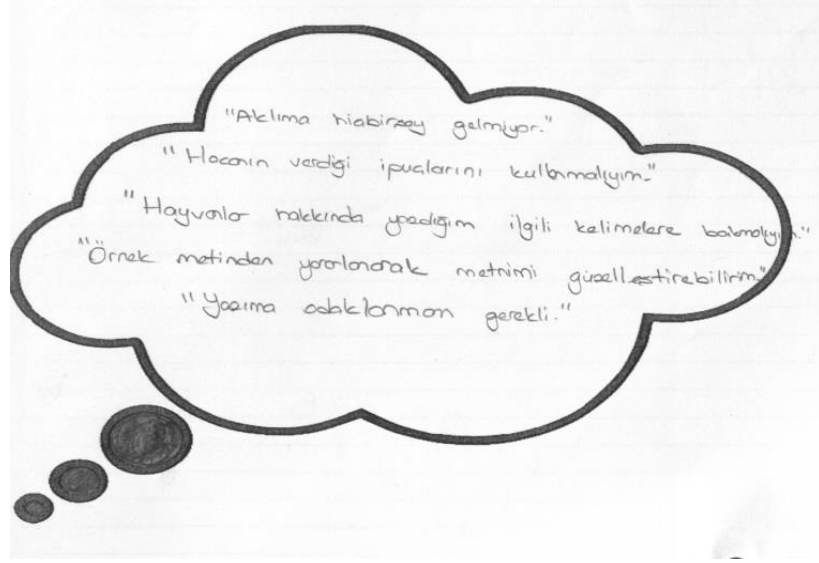 "Aklıma hiçbirşey gelmiyor."
"Hocanın verdiği ipuçlarını kullanmalıyım."
"Hayvanlar hakkında yazdığım ilgili kelimelere bakmalıyım."
"Örnek metinden yararlanarak metnimi güzelleştirebilirim."
"Yazıma odaklanmam gerekli."